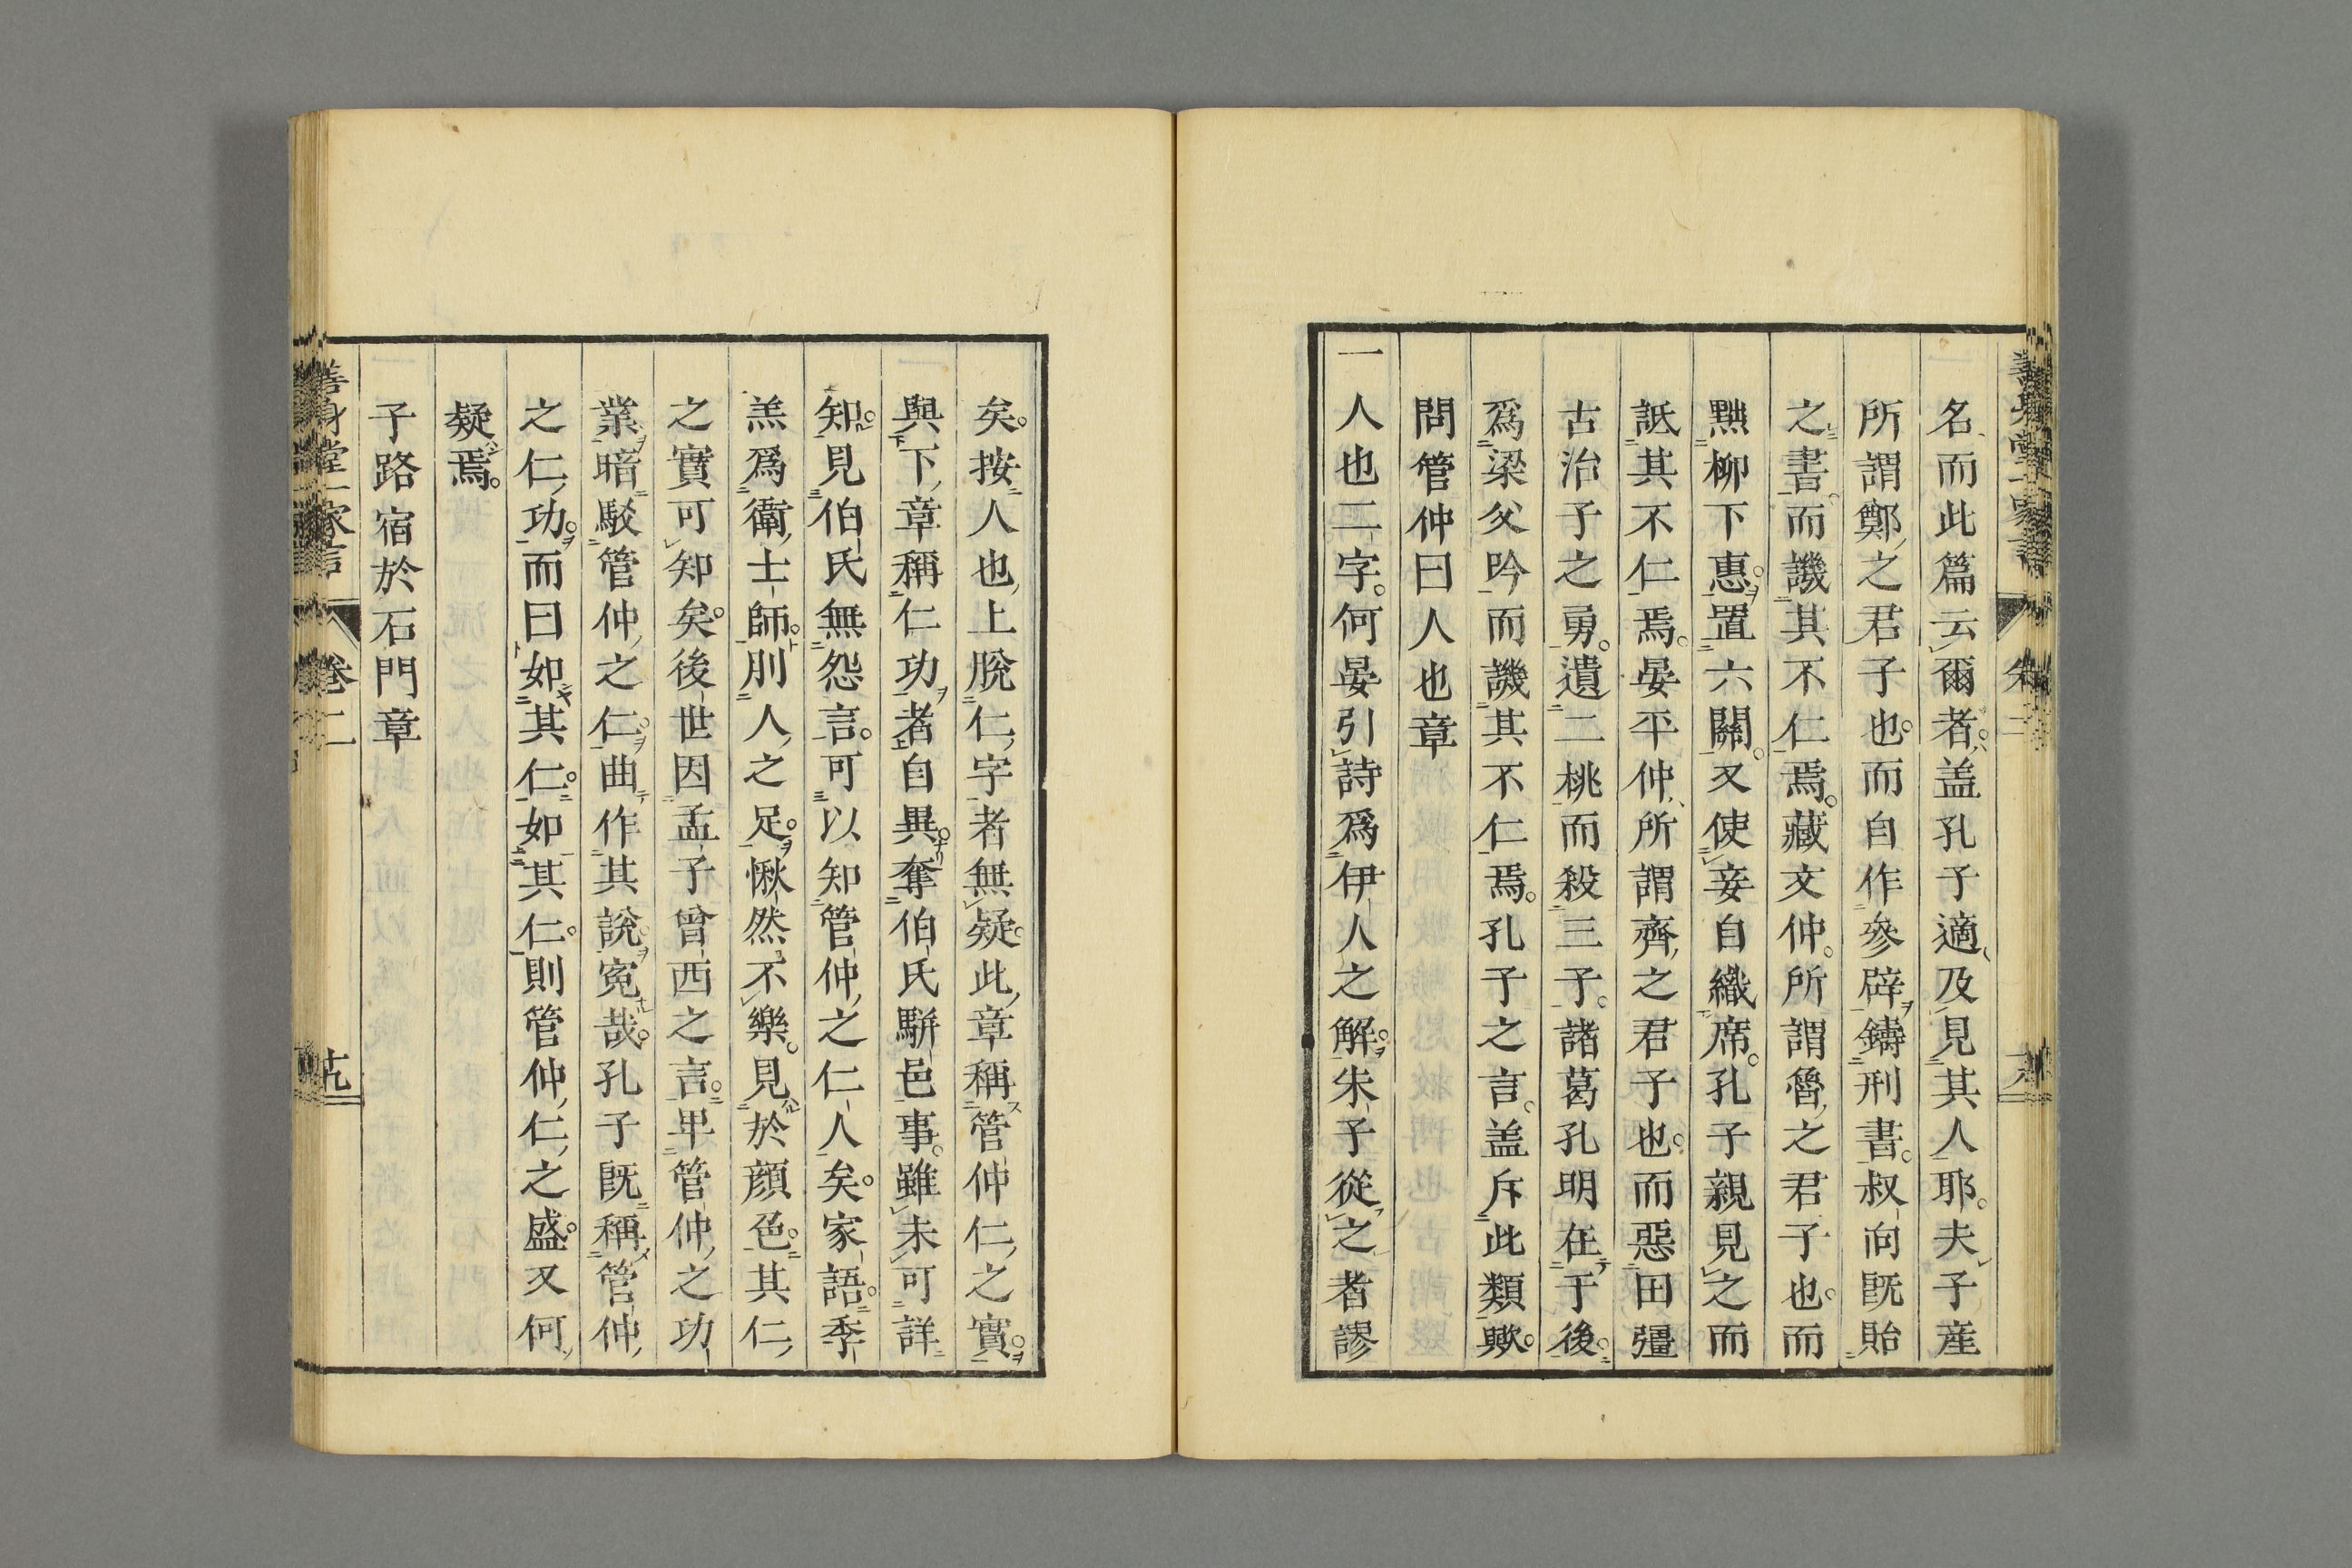 名而此篇云爾者盖孔子適及見其人耶夫子産
所謂鄭之君子也而自作參辟鑄刑書叔向既貽
之書而譏其不仁焉藏文仲所謂魯之君子也而
黙柳下惠置六關又使妾自織席孔子親見之而
詆其不仁焉晏平仲所謂齊之君子也而惡田彊
古治子之勇遺二桃而殺三子諸葛孔明在于後
爲梁父吟而譏其不仁焉孔子之言盖斥此類歟
問管仲曰人也章
一人也二字何晏引詩爲伊人之解朱子從之者謬
矣按人也上脱仁字者無疑此章稱管仲仁之實
與下章稱仁功者自異奪伯氏駢邑事雖未可詳
知見伯氏無怨言可以知管仲之仁人矣家語季
羔爲衛士師刖人之足愀然不樂見於顔色其仁
之實可知矣後世因孟子曾西之言卑管仲之功
業暗駁管仲之仁曲作其說寃哉孔子既稱管仲
之仁功而曰如其仁如其仁則管仲仁之盛又何
疑焉
子路宿於石門章
善身堂一家言
巻二